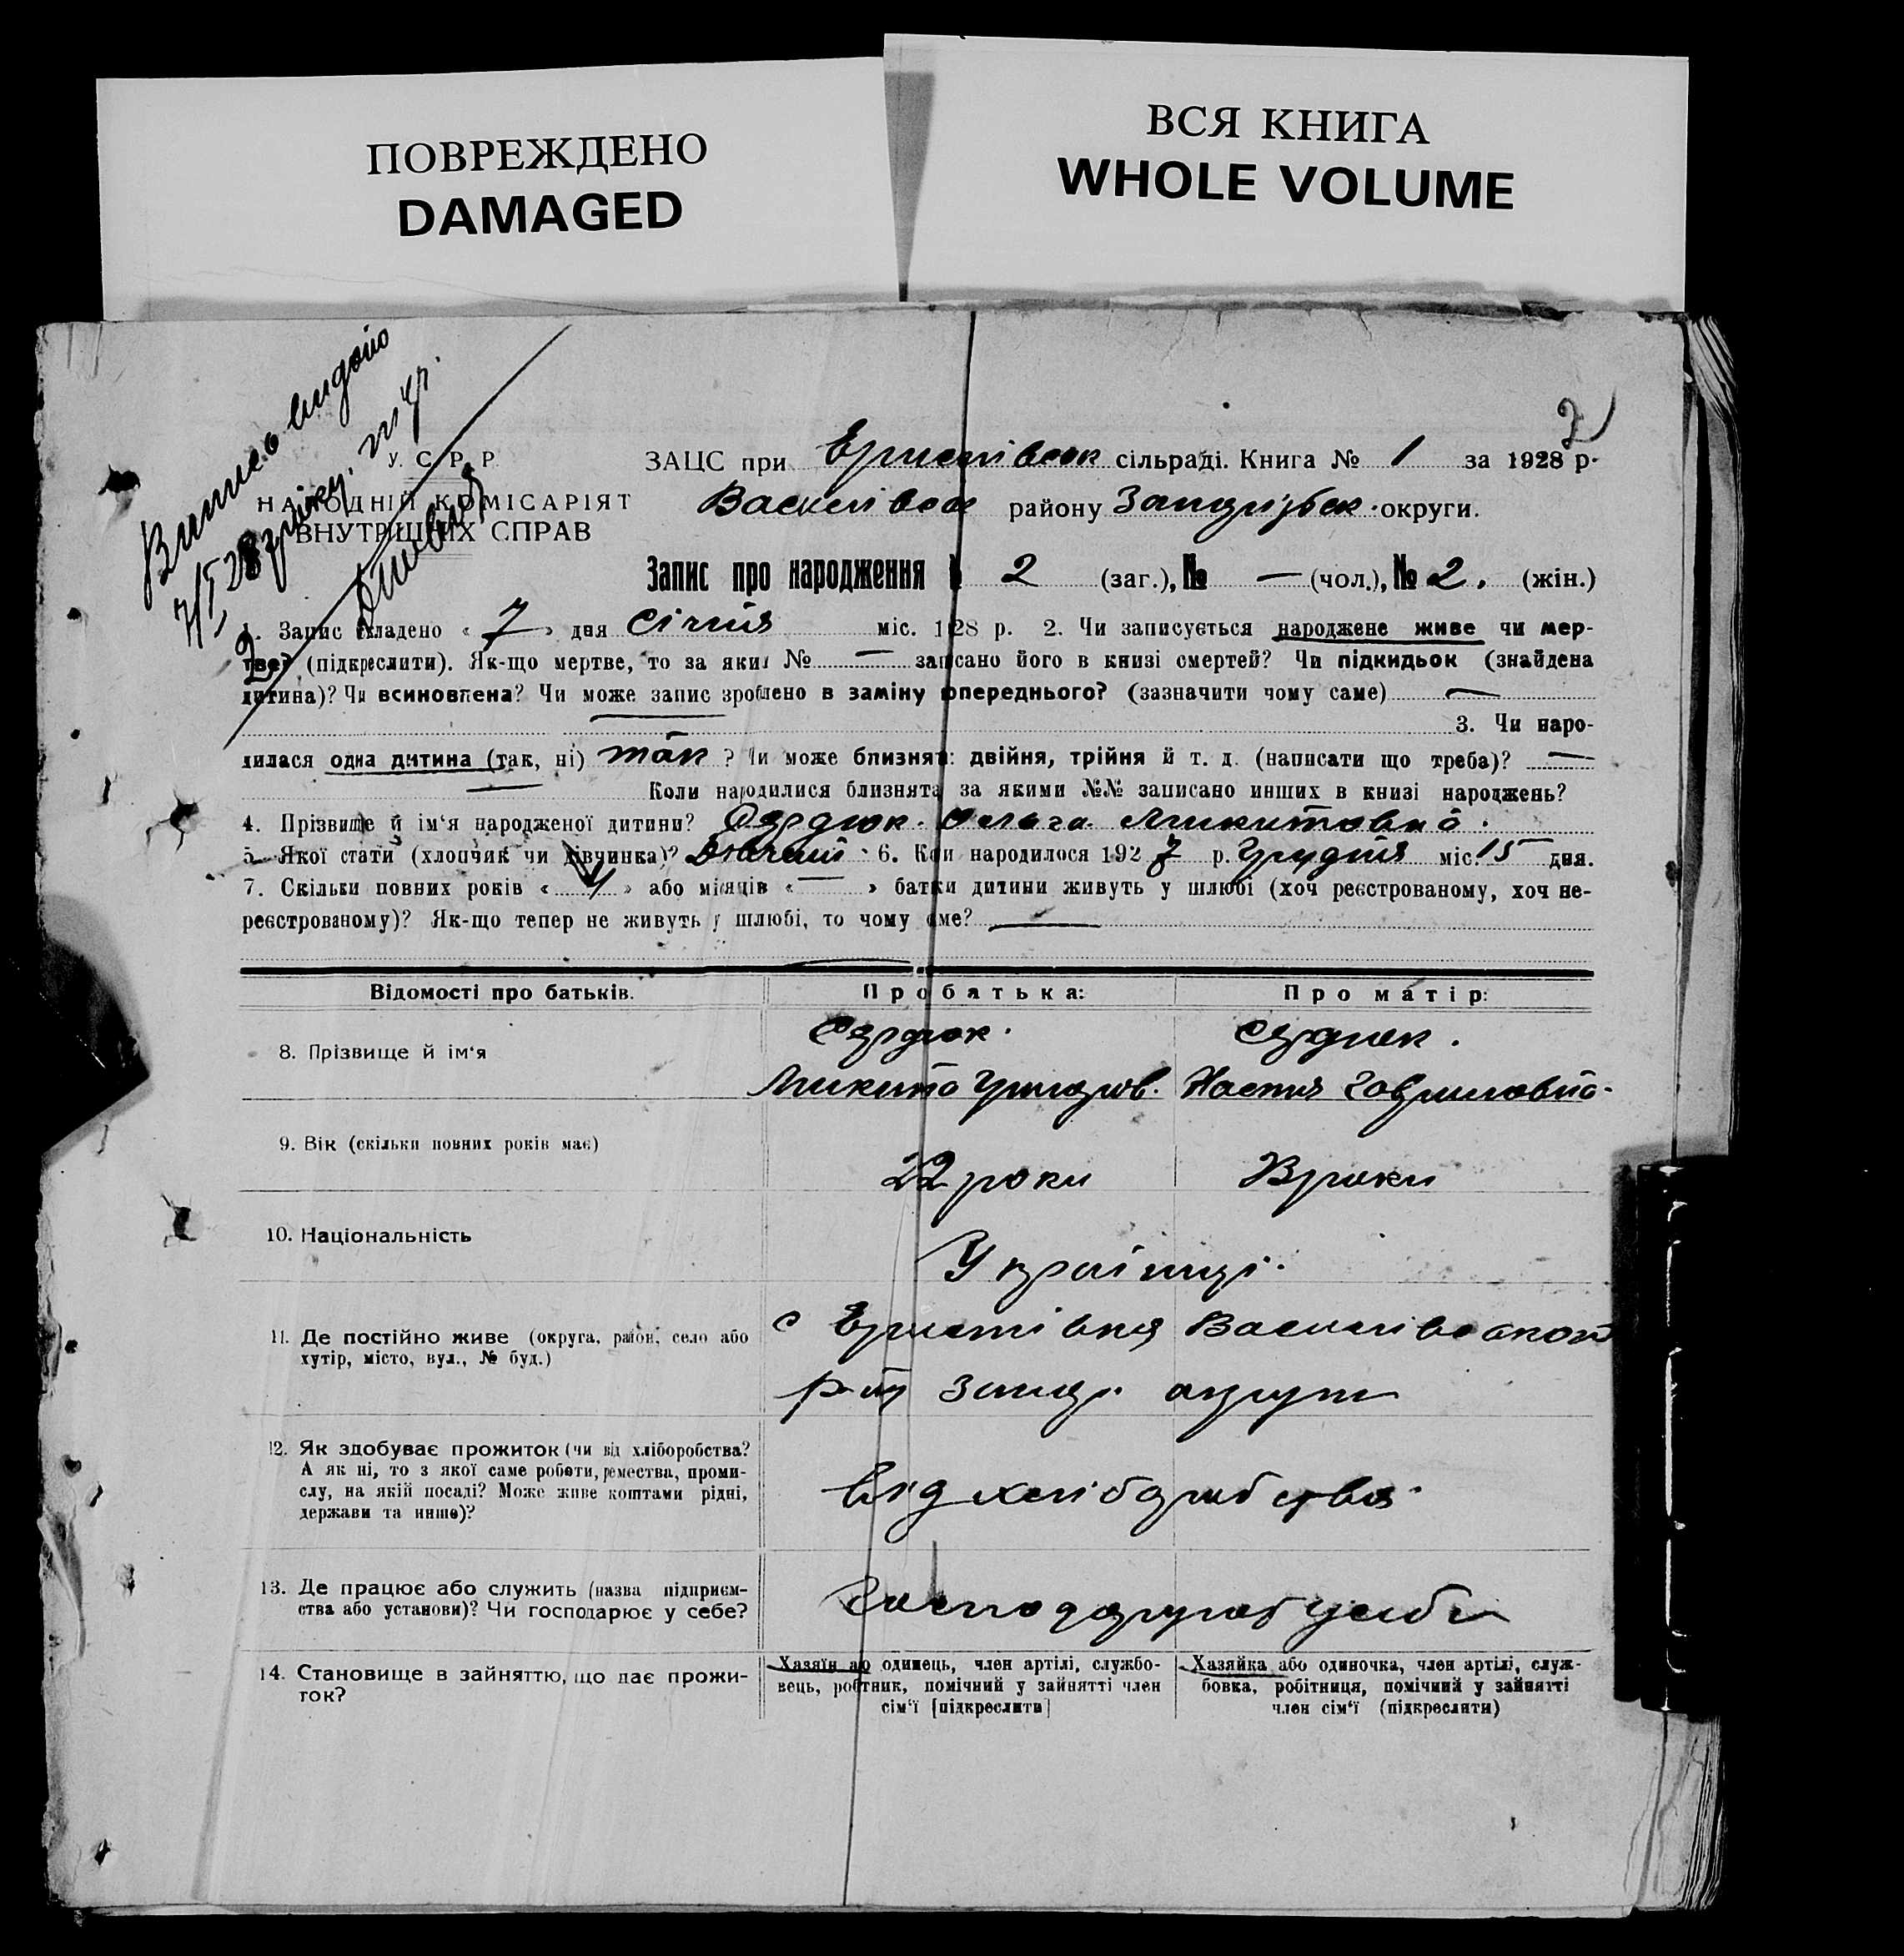 ПОВРЕЖДЕНО
DAMAGED
ВСЯ КНИГА
WHOLE VOLUME
2
Випис видано
7/І 28 року
У. С. Р. Р.
НАРОДНІЙ КОМІСАРІЯТ
ВНУТРІШНІХ СПРАВ
ЗАЦС при сільраді. Книга № 1 за 1928 р.
Василівськ району Запоріжськ. округи.
Запис про народження № 2 (заг.), № — (чол.), № 2. (жін.)
1. Запис складено « 7 » дня Січня міс. 1928 р. 2. Чи записується народжене живе чи мер-
тве? (підкреслити). Як-що мертве, то за яким № — записано його в книзі смертей? Чи підкидьок (знайдена
дитина)? Чи всиновлена? Чи може запис зроблено в заміну попереднього? (зазначити чому саме) —
3. Чи наро-
дилася одна дитина (так, ні) так ? Чи може близнята: двійня, трійня й т. д. (написати що треба)? —
— Коли народилися близнята за якими №№ записано инших в книзі народжень?
4. Прізвище й ім'я народженої дитини? Сердюк. Ольга Микитовна.
5. Якої стати (хлопчик чи дівчинка)? 6. Коли народилося 1927 р. Грудня міс. 15 дня.
7. Скільки повних років « » або місяців « — » батьки дитини живуть у шлюбі (хоч реєстрованому, хоч не-
реєстрованому)? Як-що тепер не живуть у шлюбі, то чому саме? —
Відомості про батьків.
Про батька:
Про матір:
8. Прізвище й ім'я
Сердюк.
Микита Григоров.
Сердюк.
Настя Гавриловна.
9. Вік (скільки повних років має)
22 роки
роки
10. Національність
Українці.
11. Де постійно живе (округа, район, село або
хутір, місто, вул., № буд.)
с Василівського
р-ну Запор. округи
12. Як здобуває прожиток (чи від хліборобства?
А як ні, то з якої саме роботи, ремества, проми-
слу, на якій посаді? Може живе коштами рідні,
держави та инше)?
Від хліборобства.
13. Де працює або служить (назва підприєм-
ства або установи)? Чи господарює у себе?
Господарують у себе
14. Становище в зайняттю, що дає прожи-
ток?
Хазяїн або одинець, член артілі, службо-
вець, робітник, помічний у зайнятті член
сім'ї [підкреслити]
Хазяйка або одиночка, член артілі, служ-
бовка, робітниця, помічний у зайнятті
член сім'ї (підкреслити)